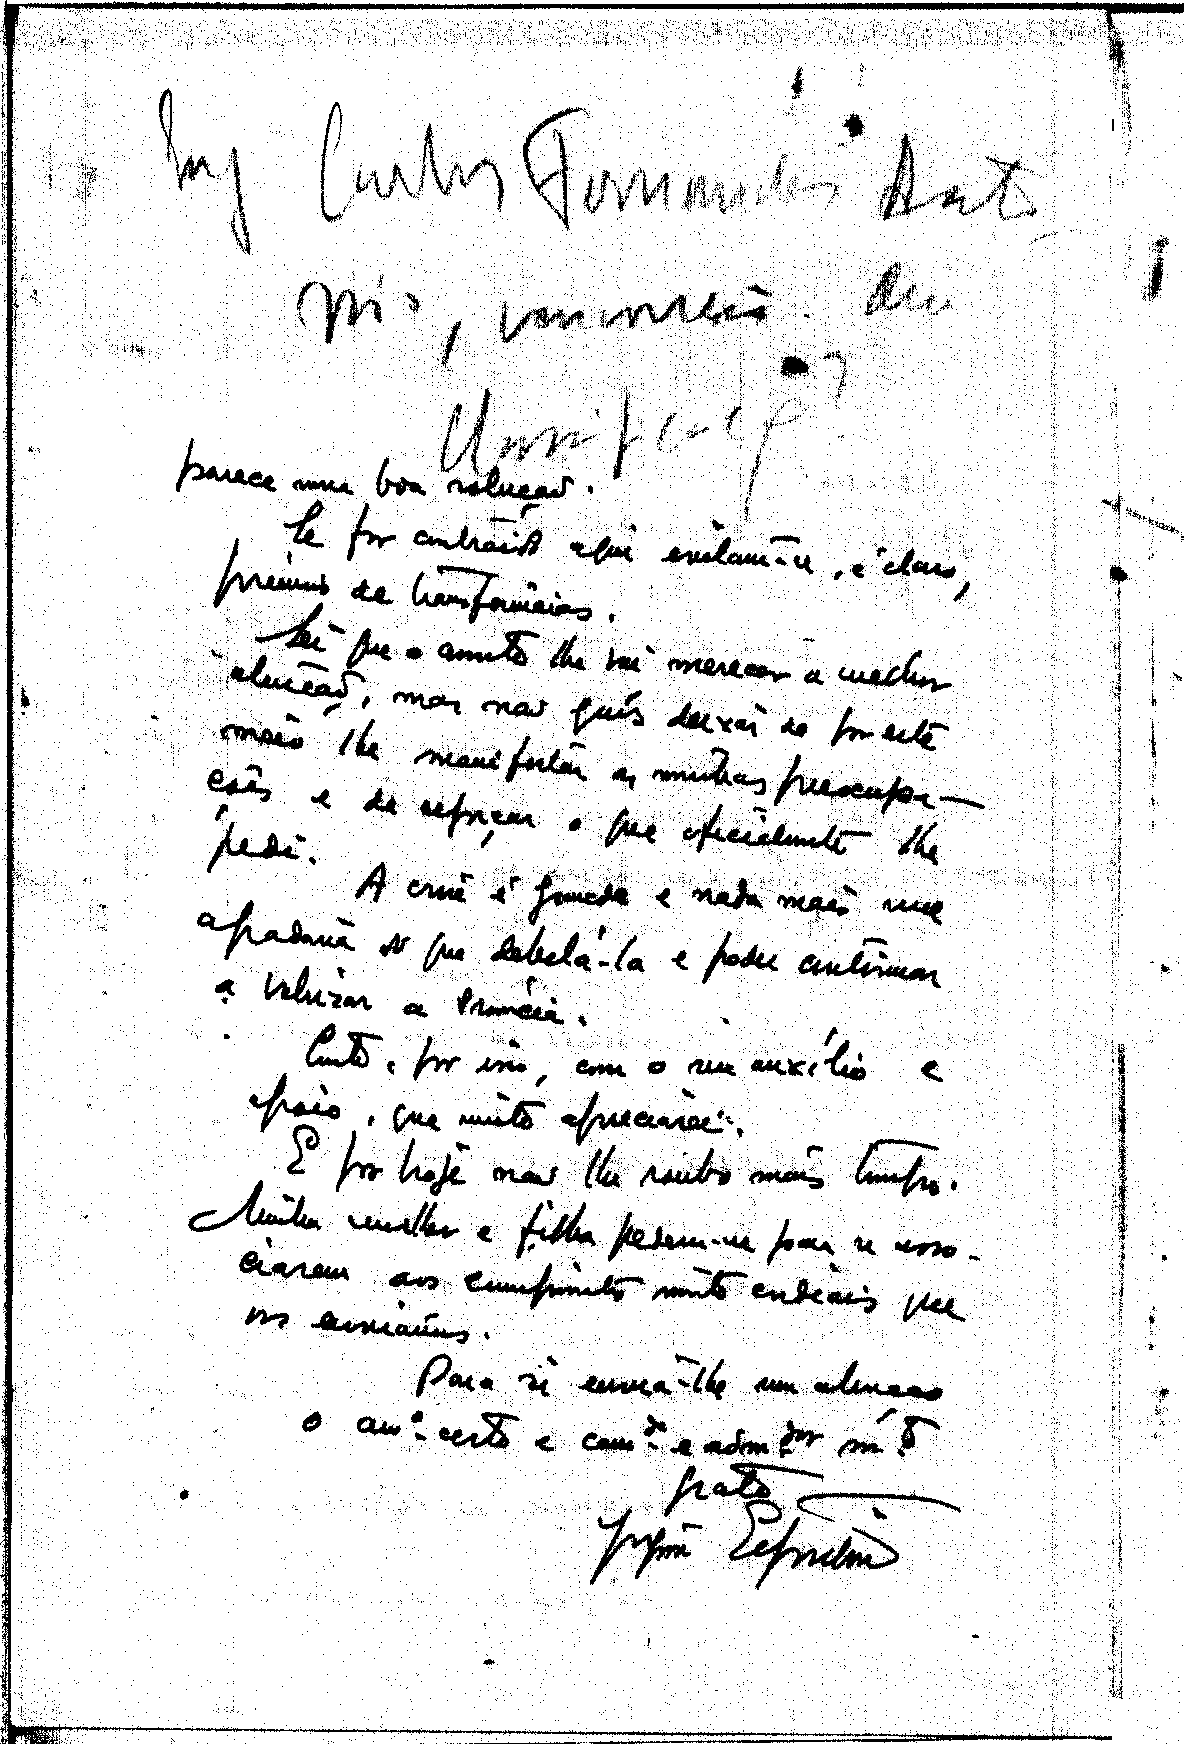 Eng Carlos Fernandes
parece uma boa solução.
Se for contraída aqui evitam-se, é claro,
prémios de transferências.
Sei que o assunto lhe vai merecer a melhor
atenção, mas não quis deixar de por este
meio lhe manifestar as minhas preocupa-
ções e de reforçar o que oficialmente lhe
pedi.
A crise é grande e nada mais me
agradaria do que debelá-la e poder continuar
a valorizar a Província.
Conto, por isso, com o seu auxílio e
apoio, que muito apreciarei.
E por hoje não lhe roubo mais tempo.
Minha mulher e filha pedem-me para se asso-
ciarem aos cumprimentos muito cordiais que
vos enviamos.
Para si envia-lhe um abraço
o amº. certo e cam.da e adm.dor mt.º
grato